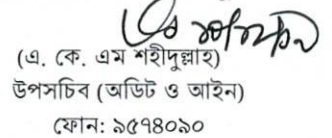 (এ. কে. এম শহীদুল্লাহ)
উপসচিব (অডিট ও আইন)
ফোন: ৯৫৭৪০৯০